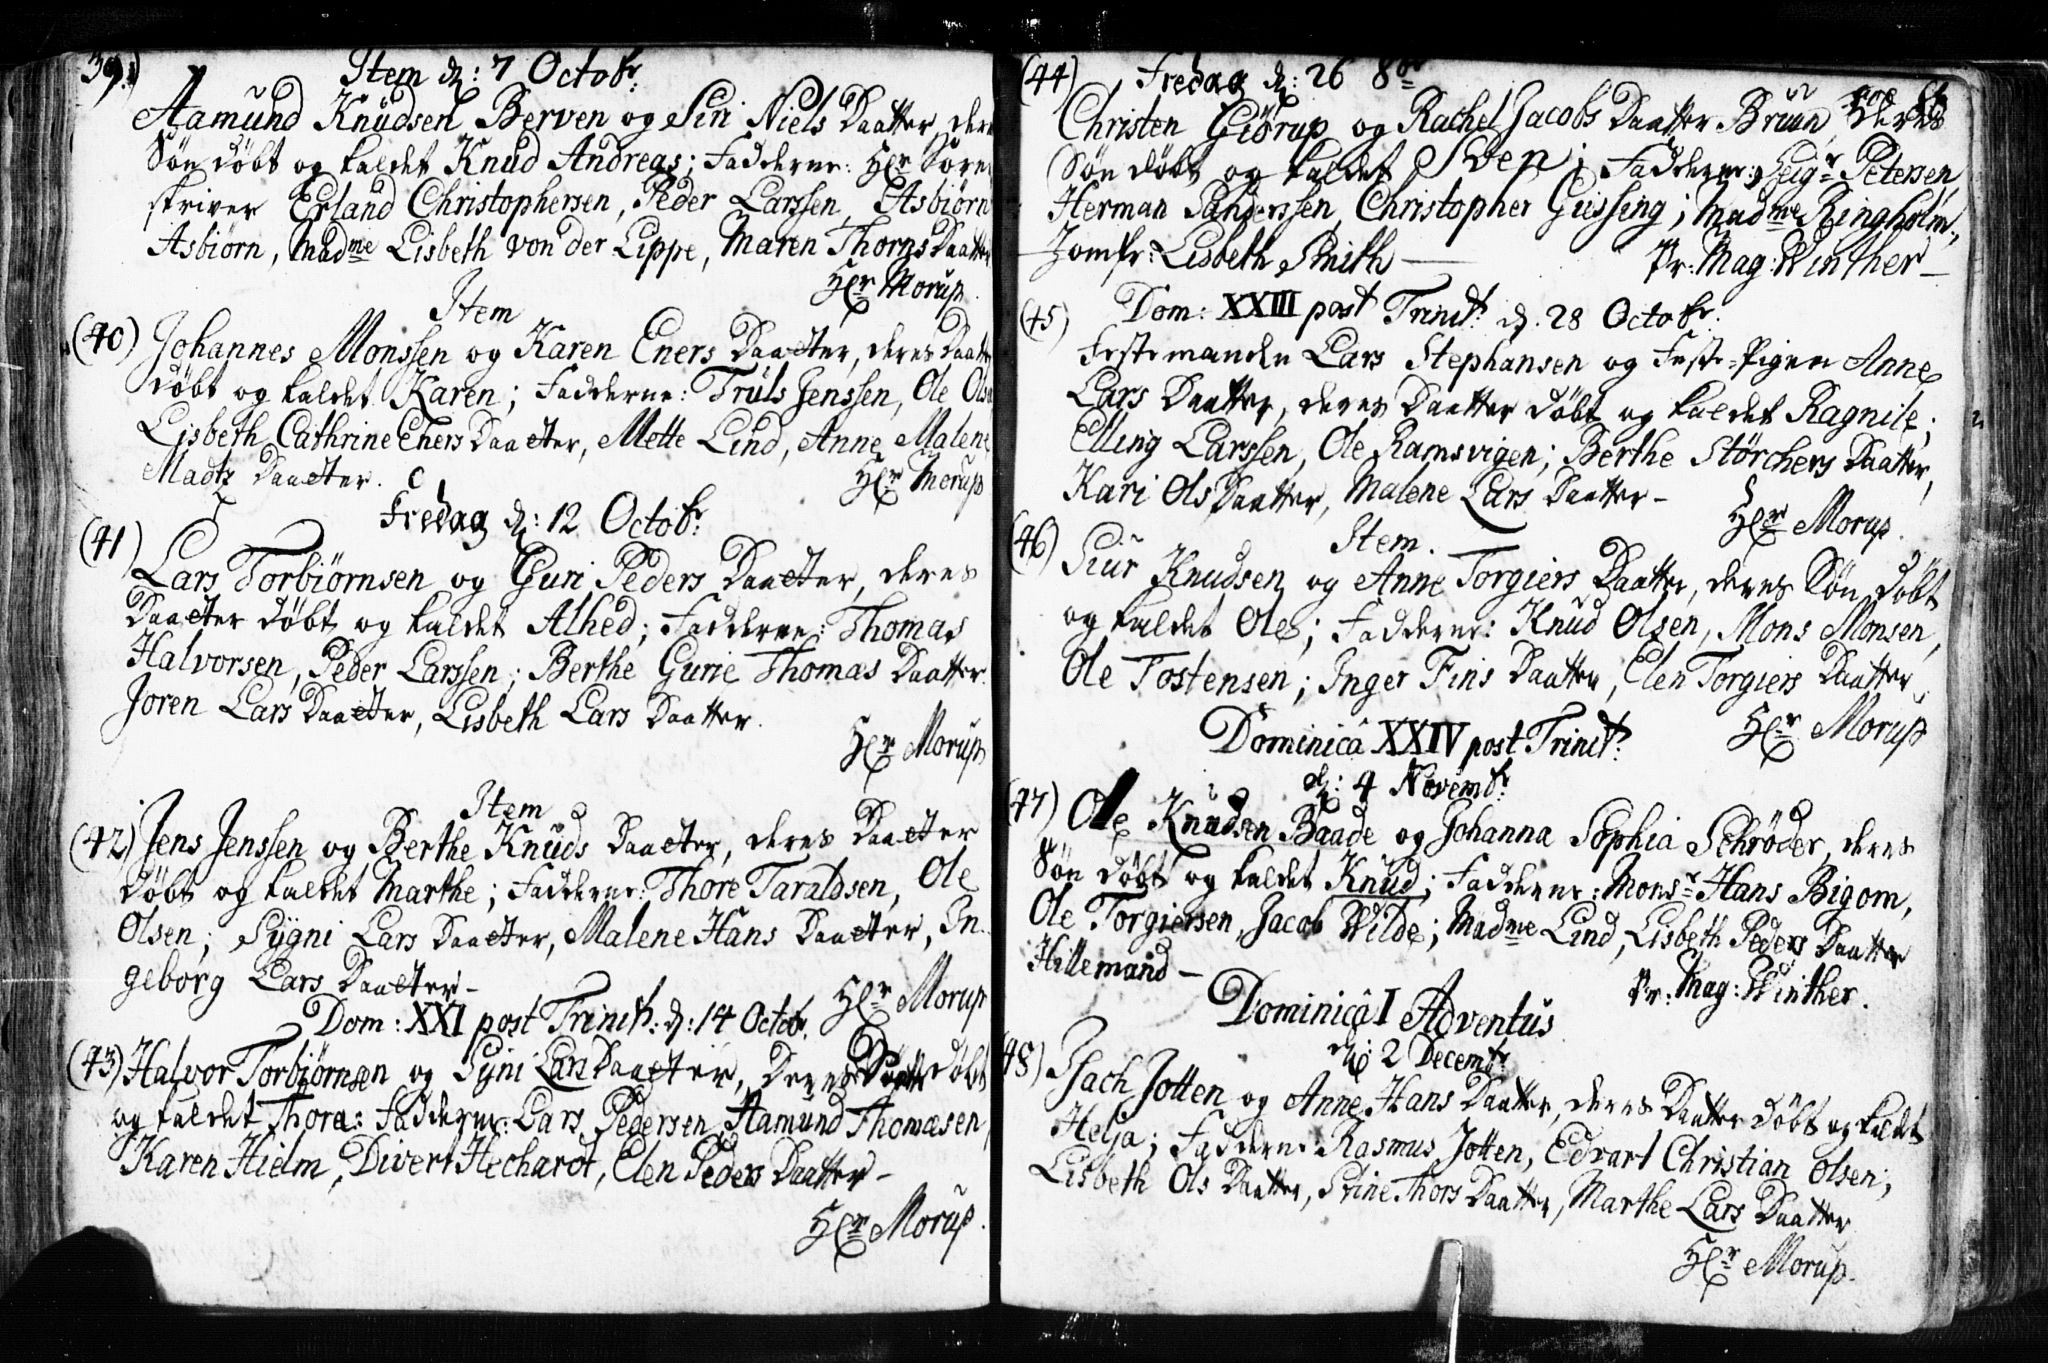 39.) Item d: 7 Octobr:
Aamund Knudsen Berven og Siri Niels Daatter, deres
Søn døbt og kaldet Knud Andreas; Fadderne: Hr Soren
skriver Erland Christophersen, Peder Larssen, Asbiørn
Asbiørn, Madme Lisbeth von der Lippe, Maren Thorns Daatter
Hr Morup.
Item
(40) Johannes Monssen og Karen Eners Daatter, deres Daatter
døbt og kaldet Karen; Fadderne: Truls Jenssen, Ole Olsen
Lisbeth Cathrine Eners Daatter, Mette Lind, Anne Malene
Madtz Daatter. Hr Morup
Fredag d: 12 Octobr:
(41) Lars Torbiørnsen og Guri Peders Daatter, deres
Daatter døbt og kaldet Alhed; Fadderne: Thomas
Halvorsen, Peder Larssen; Berthe Gurie Thomas Daatter.
Joren Lars Daatter, Lisbeth Lars Daatter.
Hr Morup
Item
(42) Jens Jenssen og Berthe Knuds Daatter, deres Daatter
døbt og kaldet Marthe; Fadderne: Thore Taraldsen, Ole
Olsen; Sygni Lars Daatter, Malene Hans Daatter, In-
geborg Lars Daatter-
Hr Morup
Dom: XXI post Trinit: d: 14 Octobr.
(43) Halvor Torbiørnsen og Syni Lars Daatter, Deres døbt
og kaldet Thora: Fadderne: Lars Pedersen, Aamund Thomæsen,
Karen Hielm, Divert Hechardt, Elen Peders Daatter-
Hr Morup.
(44) Fredag d: 26 8br
Christen Giörup og Rachel Jacobs Daatter Bruun, deres
Søn døbt og kaldet Sven; Fadderne: Seigr Petersen,
Herman Sanderssen, Christopher Giessing; Madme Ringholm,
Jomfr: Lisbeth Smith— Pr: Mag: Winther—
(45) Dom: XXIII post Trinit: d. 28 Octobr.
Festemanden Lars Stephansen og Feste-Pigen Anne
Lars Daatter, deres Daatter døbt og kaldet Ragnile;
Elling Larssen, Ole Ramsvigen; Berthe Størchers Daatter,
Kari Ols Daatter, Malene Lars Daatter-
Hr Morup.
Item.
(46) Siur Knudsen og Anne Torgiers Daatter, deres Søn døbt
og kaldet Ole; Fadderne: Knud Olsen, Mons Monsen,
Ole Tostensen; Inger Fins Daatter, Elen Torgiers Daatter
Hr Morup
Dominicâ XXIV post Trinit:
d: 4 Novembr:
(47) Ole Knudsen Baade og Johanna Sophia Schrøder, deres
Søn døbt og kaldet Knud; Fadderne: Monsr Hans Bigom,
Ole Torgiersen, Jacob Wilde; Madme Lind, Lisbeth Peders Daatter
Hillemand—
Pr: Mag: Winther.
Dominicâ I Adventus
d: 2 Decembr
48) Isach Jotten og Anne Hans Daatter, deres Daatter døbt og kaldet
Helja; Fadderne: Rasmus Jotten, Edvart Christian Olsen;
Lisbeth Ols Daatter, Stine Thors Daatter, Marthe Lars Daatter
Hr Morup.